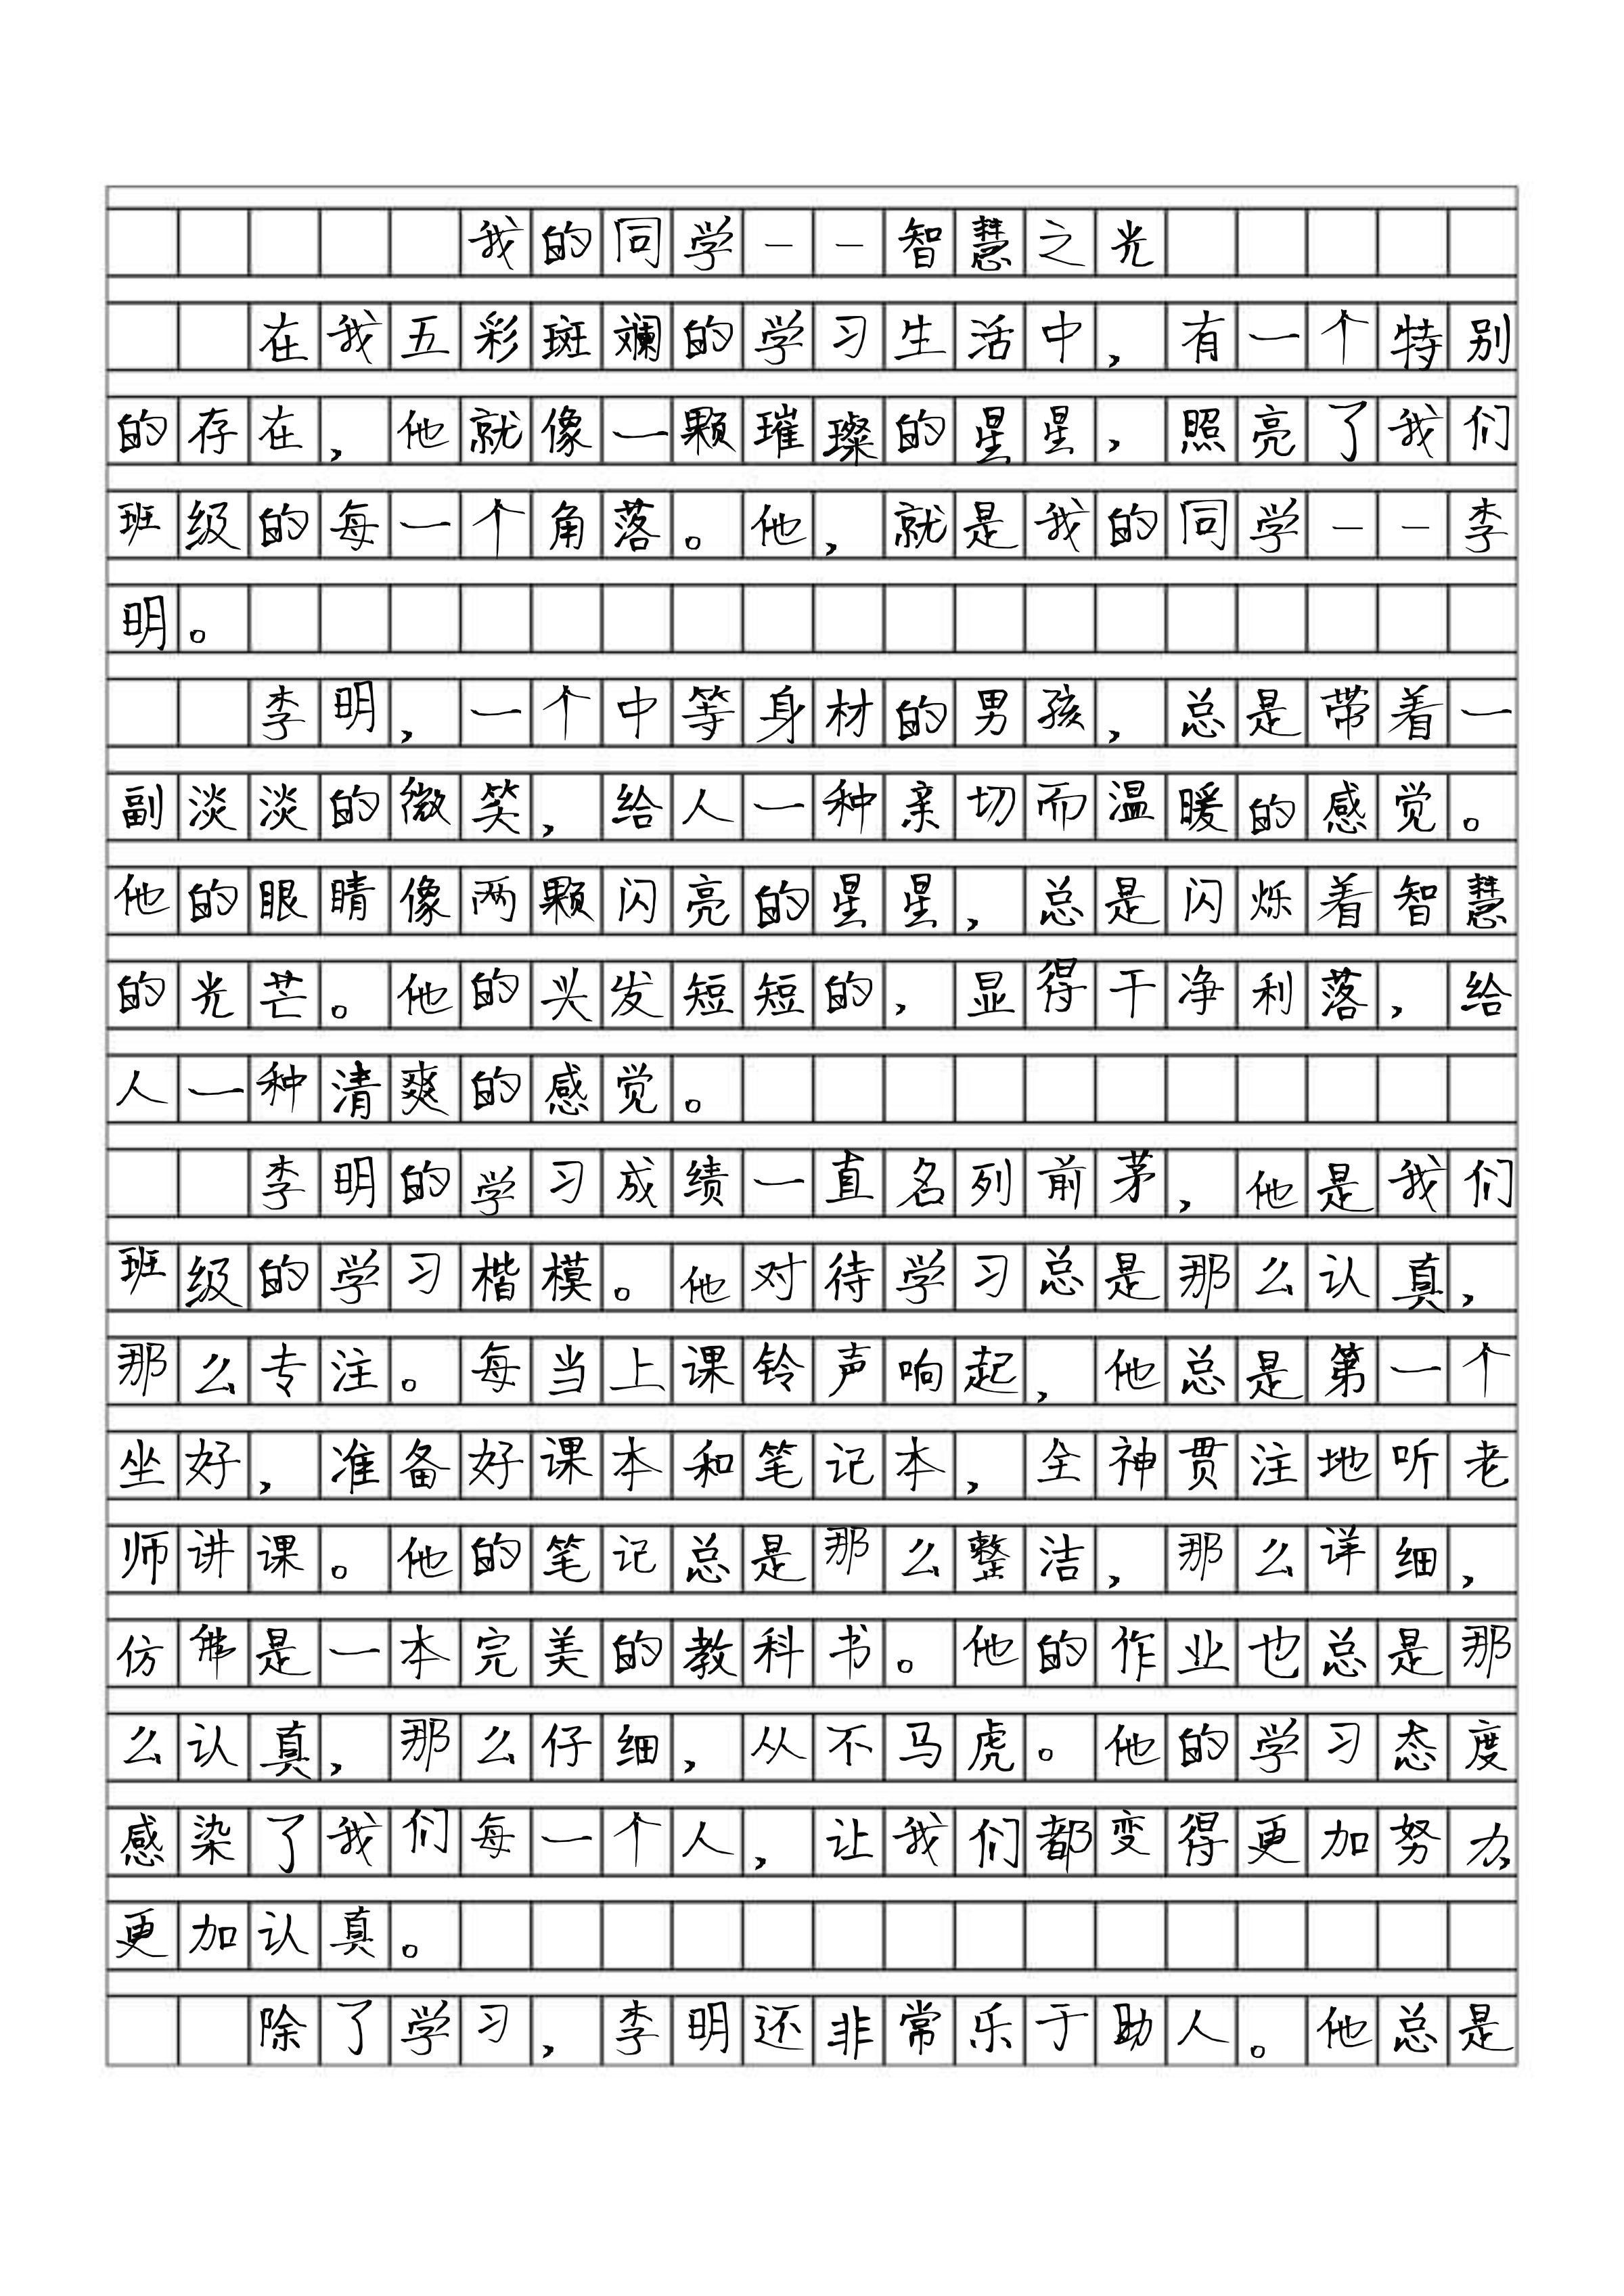 我的同学--智慧之光
在我五彩斑斓的学习生活中，有一个特别
的存在，他就像一颗璀璨的星星，照亮了我们
班级的每一个角落。他，就是我的同学--李
明。
李明，一个中等身材的男孩，总是带着一
副淡淡的微笑，给人一种亲切而温暖的感觉。
他的眼睛像两颗闪亮的星星，总是闪烁着智慧
的光芒。他的头发短短的，显得干净利落，给
人一种清爽的感觉。
李明的学习成绩一直名列前茅，他是我们
班级的学习楷模。他对待学习总是那么认真，
那么专注。每当上课铃声响起，他总是第一个
坐好，准备好课本和笔记本，全神贯注地听老
师讲课。他的笔记总是那么整洁，那么详细，
仿佛是一本完美的教科书。他的作业也总是那
么认真，那么仔细，从不马虎。他的学习态度
感染了我们每一个人，让我们都变得更加努力，
更加认真。
除了学习，李明还非常乐于助人。他总是